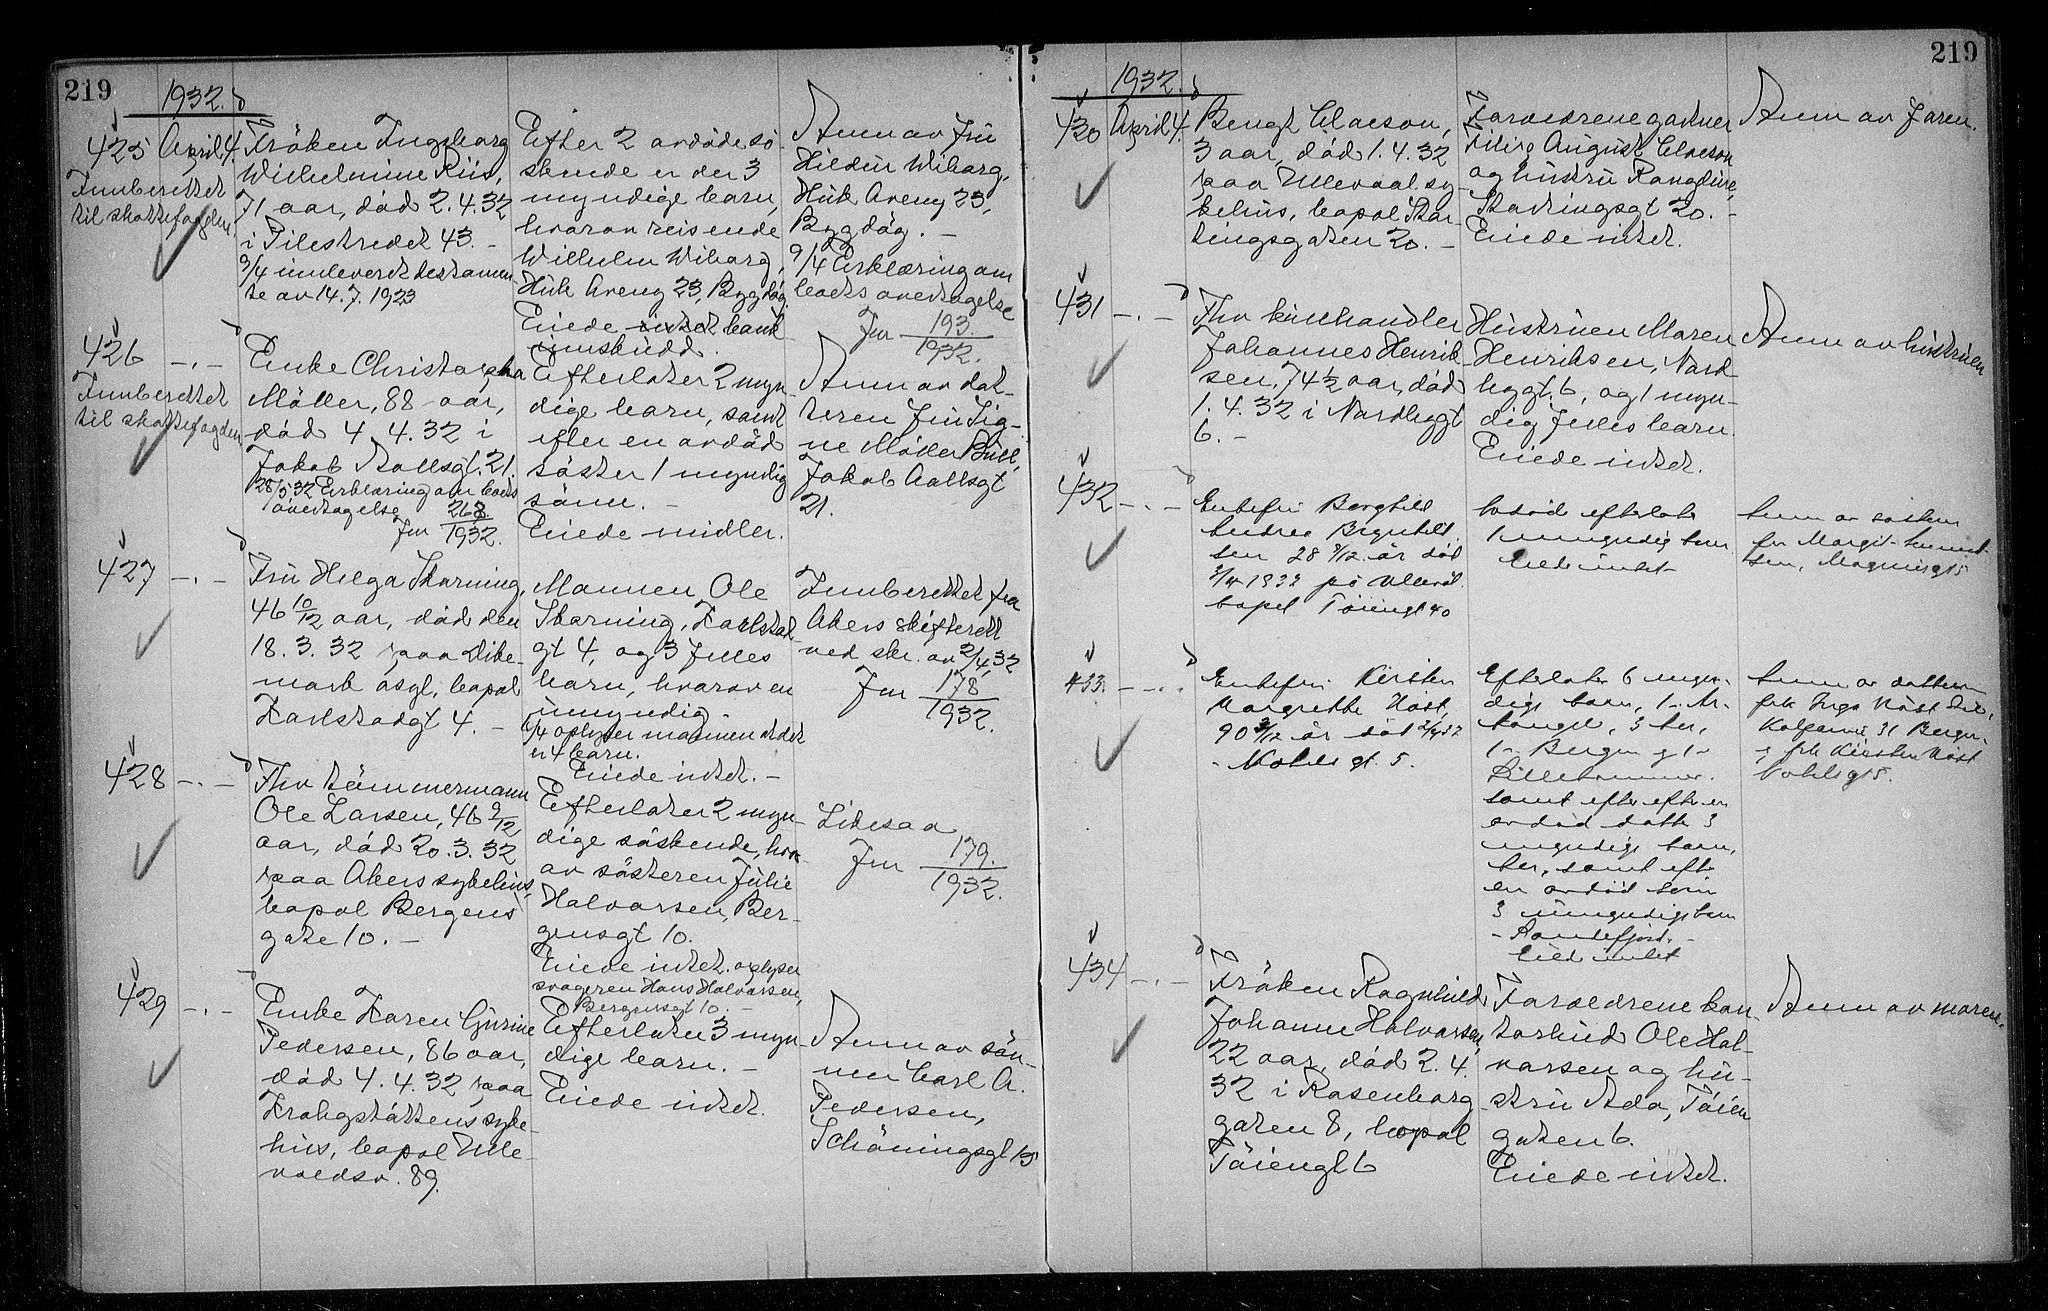 219
1932.
425
April 4.
Innberettet
til skattefogden.
Fröken Ingeborg
Wilhelmine Riis,
71 aar, död 2.4.32
i Pilestredet 43. -
9/4 innlevert testamen
te av 14.7.1923
Efter 2 avdöde sö
skende er der 3
myndige barn,
hvorav reisende
Wilhelm Wiborg,
Huk Aveny 23, Bygdöy
Eiede intet bank
innskudd.
Anm av fru
Hildur Wiborg,
Huk Aveny 23,
Bygdöy. -
9/4 Erklæring om
boets overtagelse
Jnr 193.
1932.
426 -.-
Innberettet
til skattefogden
Enke Christopha
Möller, 88 aar,
död 4.4.32 i
Jakob Aallsgt. 21.
28/5.32 Erklæring om boets
overtagelse
Jnr 268.
1932.
Efterlater 2 myn
dige barn, samt
efter en avdöd
söster 1 myndig
sönn. -
Eiede midler.
Anm av dat-
teren fru Sig-
ne Möller Bull,
Jakob Aallsgt
21.
427 -.-
Fru Helga Skarning,
46 10/12 aar, död den
18.3.32 paa Dike-
mark asyl, bopæl
Karlstadgt 4. -
Mannen Ole
Skarning, Karlstad
gt 4, og 3 felles
barn, hvorav en
umyndig.
6/4 oplyser mannen at det
er 4 barn.
Eiede intet. -
Innberettet fra
Akers skifterett
ved skr. av 2/4.32
Jnr 178
1932.
428 -.-
Fhv tömmermann
Ole Larsen, 46 9/12
aar, död 20.3.32
paa Akers sykehus,
bopæl Bergens
gate 10. -
Efterlater 2 myn-
dige söskende, hvor
av sösteren Julie
Halvorsen, Ber-
gensgt 10.
Eiede intet. oplyser
svogeren Hans Halvorsen,
Bergensgt 10. -
Likesaa
Jnr 179.
1932.
429 -.-
Enke Karen Gurine
Pedersen, 86 aar,
död 4.4.32 paa
Krohgstöttens syke-
hus, bopæl Ulle-
voldsv. 89.
Efterlater 3 myn-
dige barn. -
Eiede intet.
Anm av sön-
nen Carl A.
Pedersen,
Schöningsgt 15
219
1932.
430 April 4.
Bengt Claeson,
3 aar, död 1.4.32
paa Ullevaal sy-
kehus, bopæl Stor
tingsgaten 20. -
Forældrene gartner
August Claeson
og hustru
20. -
Eiede intet.
Anm av faren.
431 -.-
Fhv kullhandler
Johannes Henrik
sen, 74 1/2 aar, död
1.4.32 i Nordbygt
6. -
Hustruen Maren
Henriksen, Nord
bygt. 6, og 1 myn-
dig felles barn.
Eiede intet.
Anm av hustruen
432 -.-
Enkefru Borghild
sen 28 9/12 år död
på Ullevål
bopæl Töiengt 40
Avdöd efterlot
1 umyndig barn
Eiede intet
Anm av søsteren
fru Margit
433. -.-
Enkefru Kirsten
Margrethe Höst,
90 3/12 år död 2/4 32
- Nobels gt. 5.
Efterlater 6 myn-
dige barn, 1 - Ar-
kangel, 3 her,
1 - Bergen og 1 -
Lillehammer.
samt efter efter en
avdöd datter 3
myndige barn,
her, samt efter
en avdöd sönn
3 umyndige barn
- Sandefjord. -
Eiede intet
Anm av datteren
frk Inga Höst
31 Bergen
og frk Kirsten Höst
Nobelsgt 5.
434 -.-
Fröken Ragnhild
Johanne Halvorsen,
22 aar, död 2.4.
32 i Rosenborg
gaten 8, bopæl
Töiengt 6
Forældrene kon-
torbud Ole Hal-
vorsen og hu-
stru Ada, Töien
gaten 6.
Eiede intet.
Anm av moren.